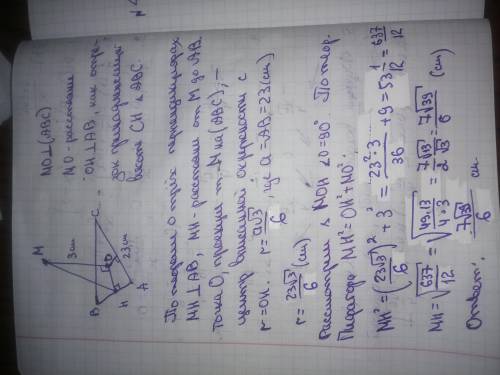 N 4
M
3 см
B
C
O
23 см
H
A
MO⊥(ABC)
MO - расстояние
OH⊥AB, как отре-
зок принадлежащий
высоте CH △ABC.
По теореме о трёх перпендикулярах
MH⊥AB, MH - расстояние от M до AB.
Точка O, проекция т. M на (ABC), –
центр вписанной окружности с
r = OH. r = a√3/6, где a = AB = 23 (см)
r = 23√3/6 (см)
Рассмотрим △ MOH ∠O = 90° По теор.
Пифагора MH² = OH² + MO².
MH² = (23√3/6)² + 3² = 23²·3/36 + 9 = 53 1/12 = 637/12
MH = √637/12 = √49·13/4·3 = 7√13/2√3 = 7√39/6 (см)
Ответ: 7√39/6 см